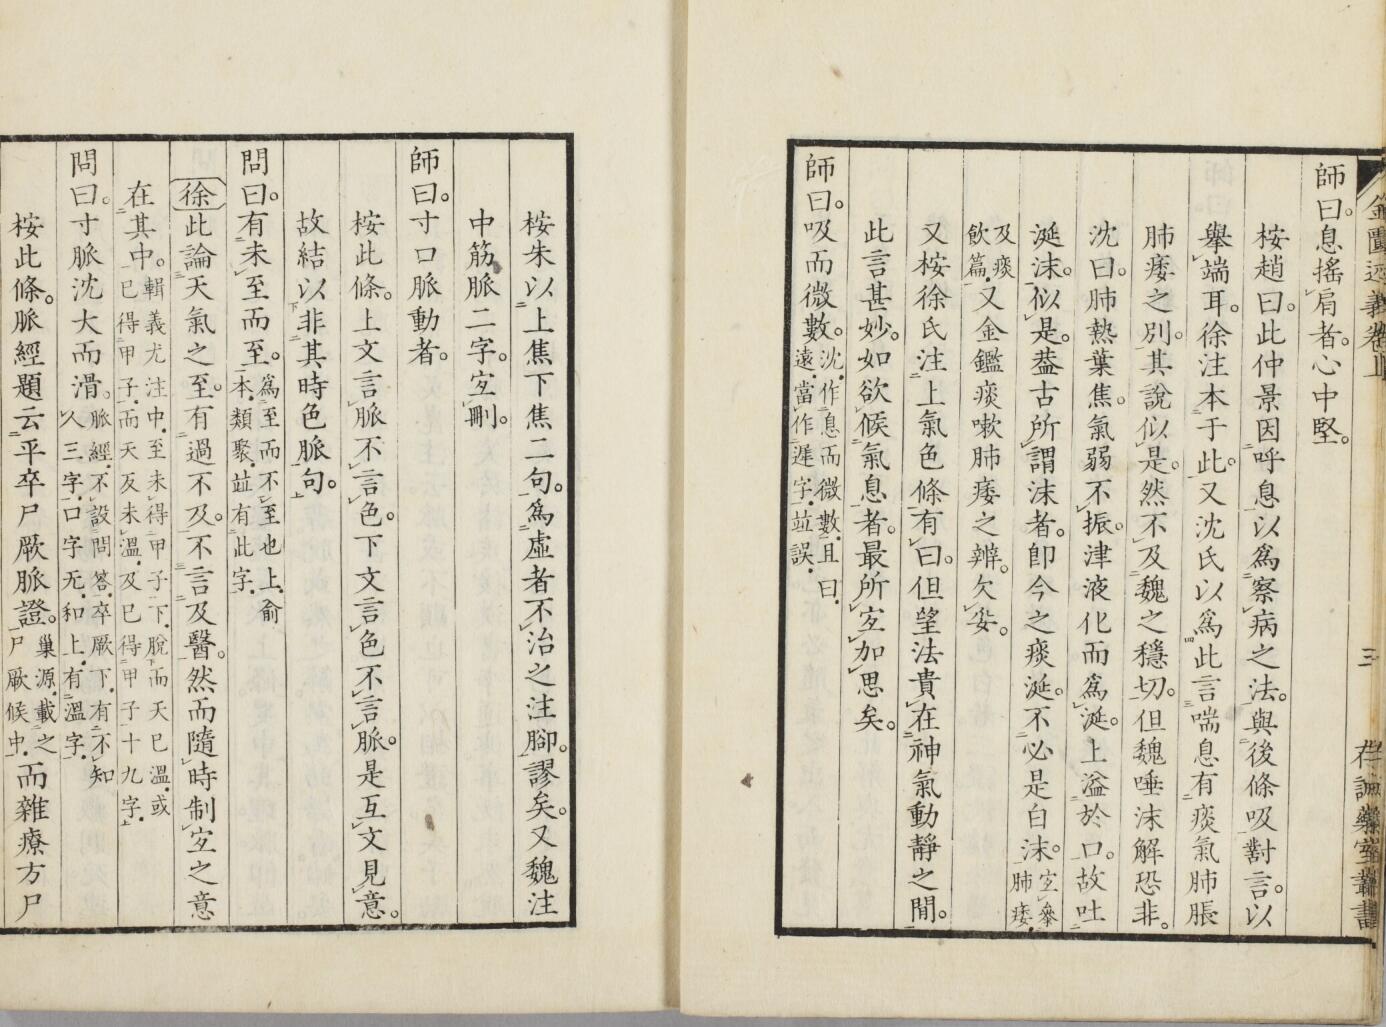 金匱述義卷上
三
存誠藥室叢書
師曰。息搖肩者。心中堅。
桉趙曰。此仲景因呼息以爲察病之法。與後條吸對言。以
擧端耳。徐注本于此。又沈氏以爲此言喘息有痰氣肺脹
肺痿之別。其說似是。然不及魏之穩切。但魏唾沫解恐非。
沈曰。肺熱葉焦。氣弱不振。津液化而爲涎。上溢於口。故吐
涎沫。似是。葢古所謂沫者。卽今之痰涎。不必是白沫。宐參肺痿
及痰飮篇。又金鑑痰嗽肺痿之辨。欠妥。
又桉徐氏注。上氣色條有曰。但望法貴在神氣動靜之間。
此言甚妙。如欲候氣息者。最所宐加思矣。
師曰。吸而微數。沈。作息而微數。且曰。遠。當作遲字。竝誤。
桉朱以上焦下焦二句。爲虛者不治之注腳。謬矣。又魏注
中筋脈二字。宐刪。
師曰。寸口脈動者。
桉此條。上文言脈不言色。下文言色不言脈。是互文見意。
故結以非其時色脈句。
問曰。有未至而至。爲至而不至也上。俞本。類聚。竝有此字。
徐此論天氣之至。有過不及。不言及醫。然而隨時制宐之意
在其中。輯義尤注中。至未得甲子下。脫而天已溫。或已得甲子。而天反未溫。及已得甲子十九字。
問曰。寸脈沈大而滑。脈經。不設問答。卒厥下。有不知人三字。口字无。和上有溫字。
桉此條。脈經題云平卒尸厥脈證。巢源。載之尸厥候中。而雜療方尸